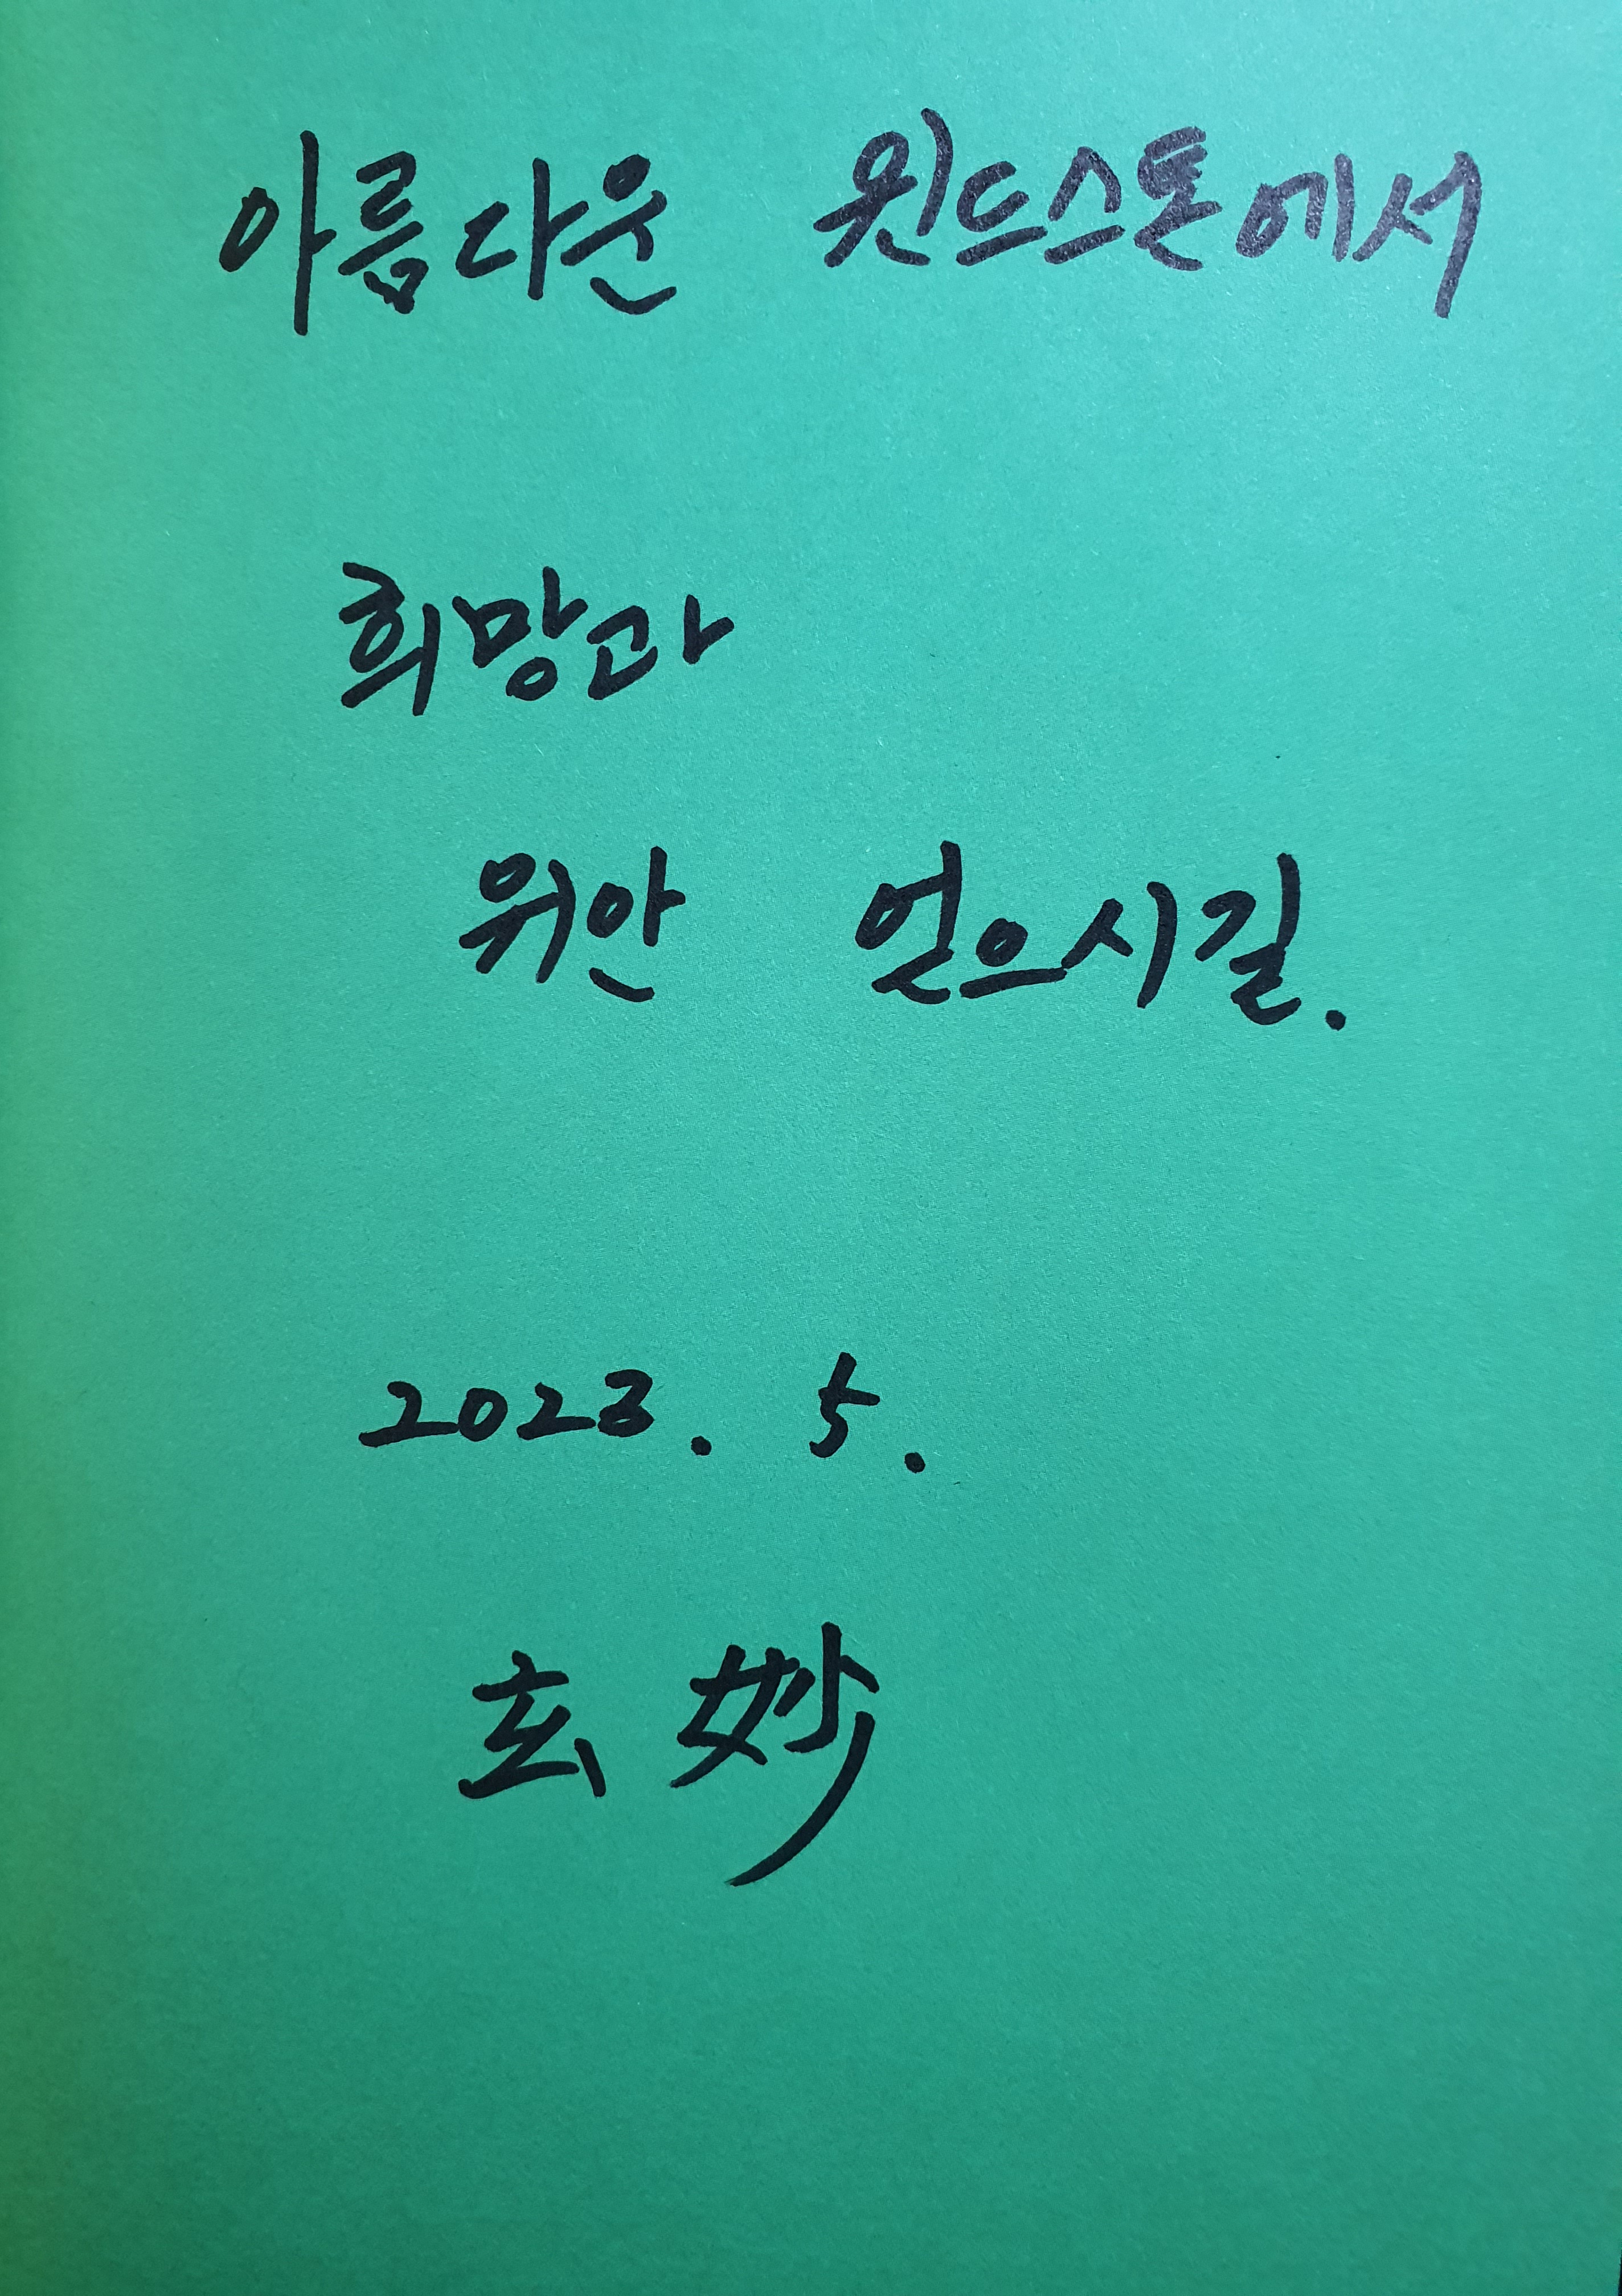 아름다운 윈드스톤에서
희망과
위안 얻으시길.
2023. 5.
玄妙